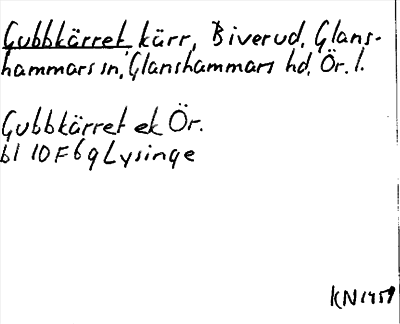 Gubbkärret, kärr, Biverud, Glans-
hammars sn, Glanshammars hd, Ör. l.
Gubbkärret ek Ör.
bl 10F 6g Lysinge